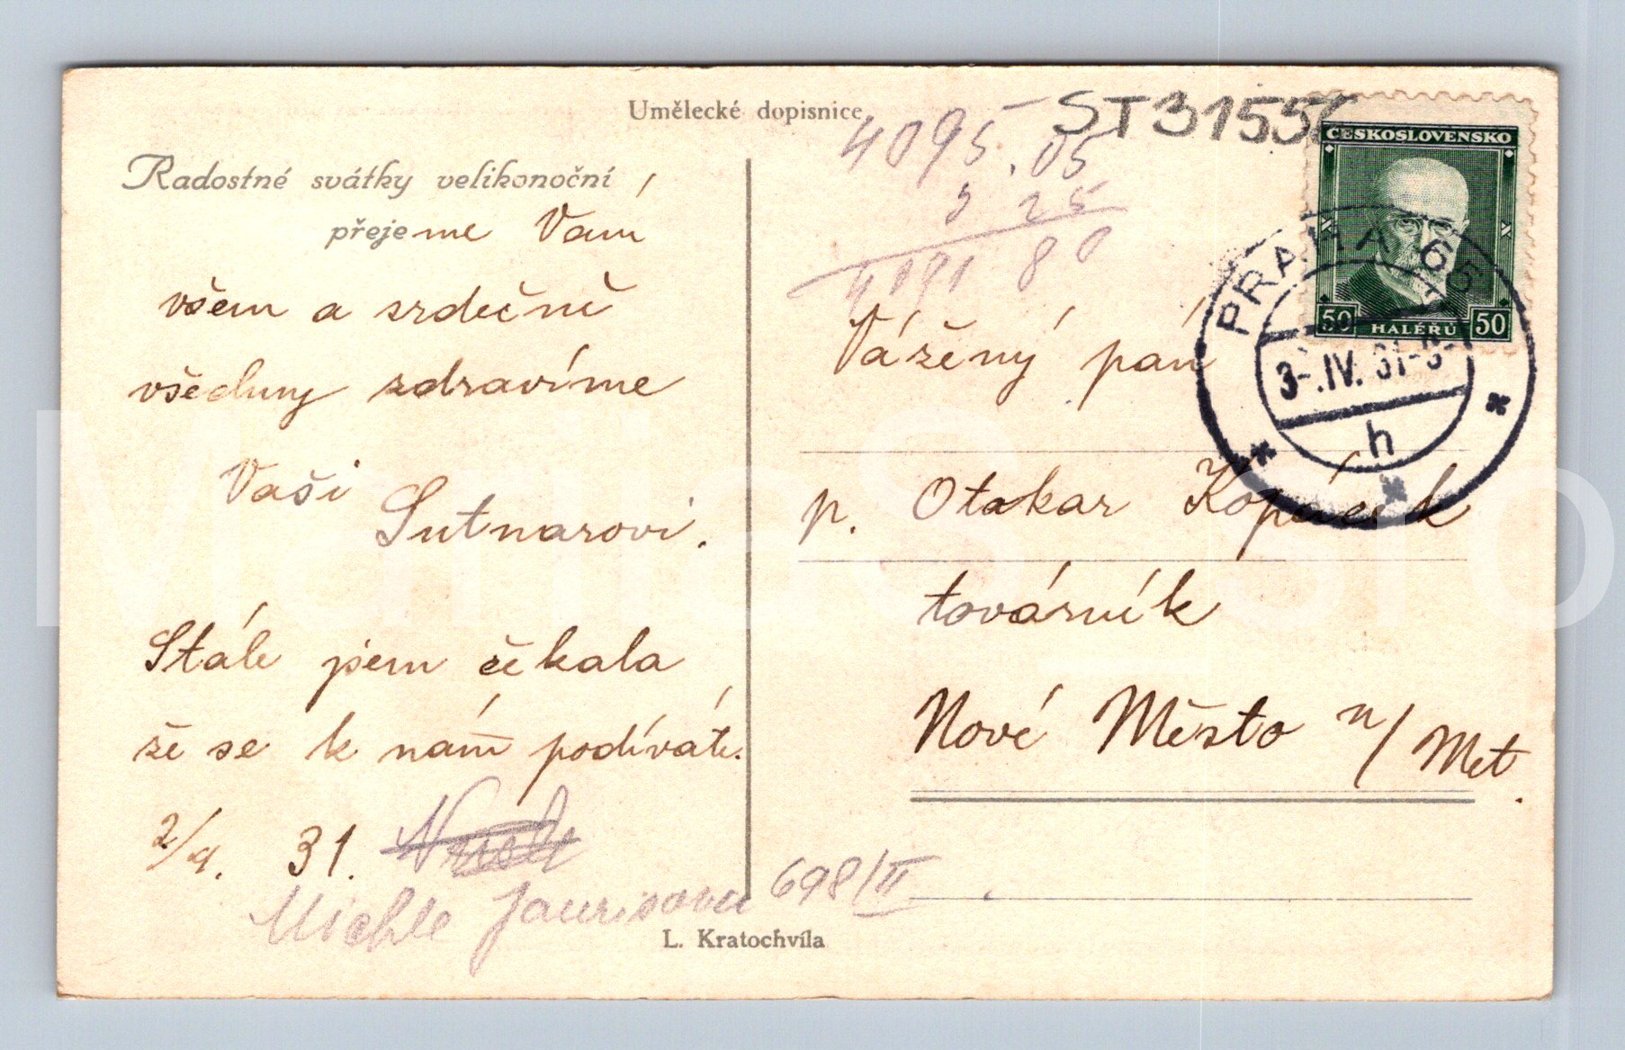 Umělecké dopisnice
ST3155
4095.05
5 25
4191 80
Radostné svátky velikonoční
přejeme Vám
všem a srdečně
všechny zdravíme
Vaši
Sutnarovi.
Stále jsem čekala
že se k nám podíváte.
2/4. 31.
Michle 698/II
L. Kratochvíla
ČESKOSLOVENSKO
50 HALÉŘŮ 50
PRAHA 65
3-.IV. 31-
h
Vážený pán
p. Otakar Kopáček
továrník
Nové Město n/Met.